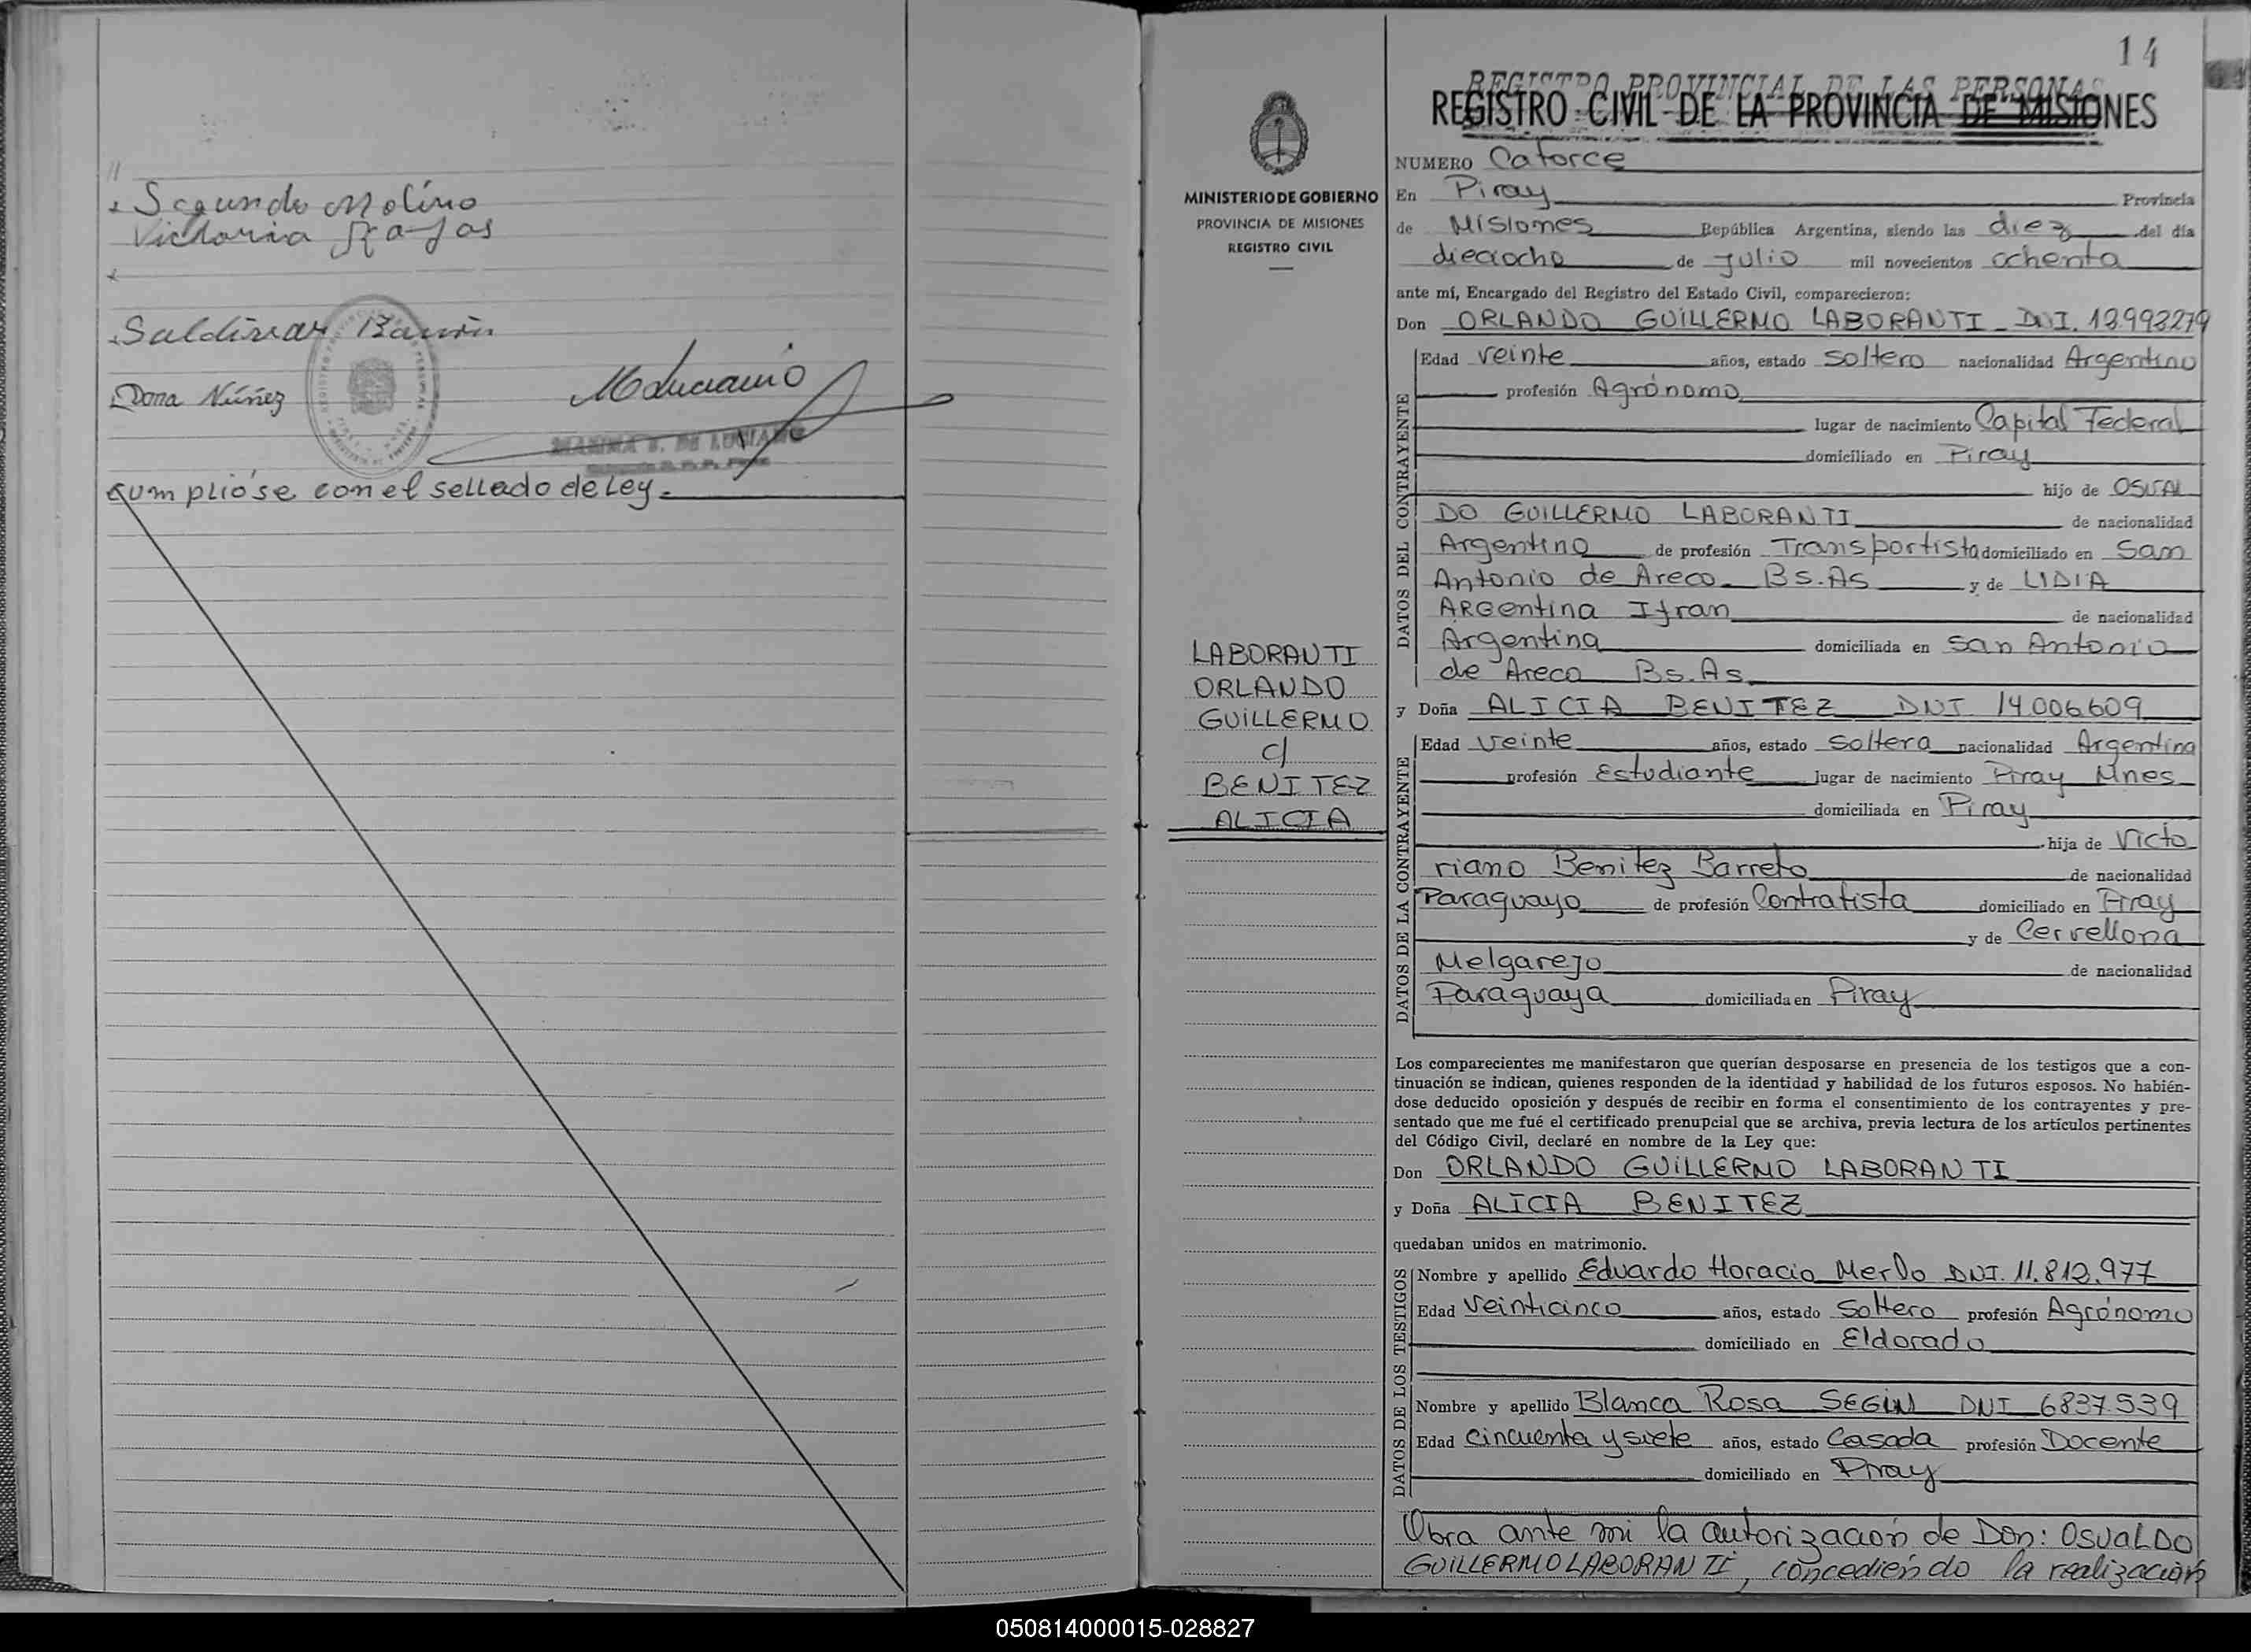 //
Segundo Molino
Victoria Rojas
Saldivar Ramón
Dona Núñez
MARINA S. DE LUCIANO
Cumplióse con el sellado de Ley.
14
MINISTERIO DE GOBIERNO
PROVINCIA DE MISIONES
REGISTRO CIVIL
LABORANTI
ORLANDO
GUILLERMO
c/
BENITEZ
ALICIA
REGISTRO PROVINCIAL DE LAS PERSONAS
REGISTRO CIVIL DE LA PROVINCIA DE MISIONES
NUMERO Catorce
En Piray Provincia
de Misiones República Argentina, siendo las diez del día
dieciocho de Julio mil novecientos ochenta
ante mí, Encargado del Registro del Estado Civil, comparecieron:
Don ORLANDO GUILLERMO LABORANTI DNI. 13.993279
DATOS DEL CONTRAYENTE
Edad veinte años, estado soltero nacionalidad Argentino
profesión Agrónomo
lugar de nacimiento Capital Federal
domiciliado en Piray
hijo de OSVAL
DO GUILLERMO LABORANTI de nacionalidad
Argentino de profesión Transportista domiciliado en San
Antonio de Areco Bs.As y de LIDIA
ARGentina Ifran de nacionalidad
Argentina domiciliada en San Antonio
de Areco Bs.As.
y Doña ALICIA BENITEZ DNI 14.006.609
DATOS DE LA CONTRAYENTE
Edad veinte años, estado soltera nacionalidad Argentina
profesión Estudiante lugar de nacimiento Piray Mnes
domiciliada en Piray
hija de Victo
riano Benitez Barreto de nacionalidad
Paraguayo de profesión Contratista domiciliado en Piray
y de Cervellona
Melgarejo de nacionalidad
Paraguaya domiciliada en Piray
Los comparecientes me manifestaron que querían desposarse en presencia de los testigos que a con-
tinuación se indican, quienes responden de la identidad y habilidad de los futuros esposos. No habién-
dose deducido oposición y después de recibir en forma el consentimiento de los contrayentes y pre-
sentado que me fué el certificado prenupcial que se archiva, previa lectura de los artículos pertinentes
del Código Civil, declaré en nombre de la Ley que:
Don ORLANDO GUILLERMO LABORANTI
y Doña ALICIA BENITEZ
quedaban unidos en matrimonio.
DATOS DE LOS TESTIGOS
Nombre y apellido Eduardo Horacio Merlo DNI. 11.812.977
Edad Veinticinco años, estado Soltero profesión Agrónomo
domiciliado en Eldorado
Nombre y apellido Blanca Rosa SEGIN DNI 6837.539
Edad Cincuenta y siete años, estado Casada profesión Docente
domiciliado en Piray
Obra ante mi la autorización de Don: OSVALDO
GUILLERMO LABORANTI, concediendo la realización
050814000015-028827